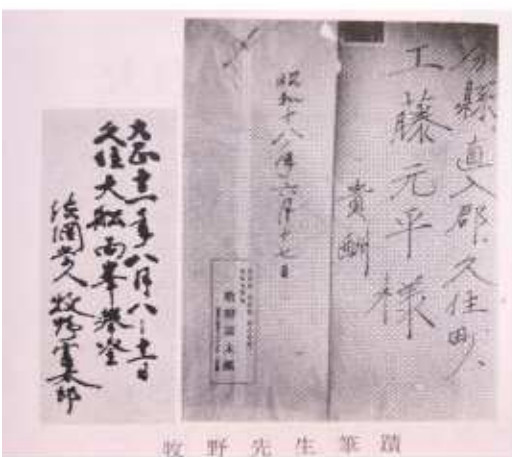 分縣、直入郡、久住町、
工藤元平様
貴酬
昭和十八年六月十七日
牧野富太郎
大正十一年八月八-十二日
久住大船両峯攀登
牧野富太郎
牧野先生筆蹟